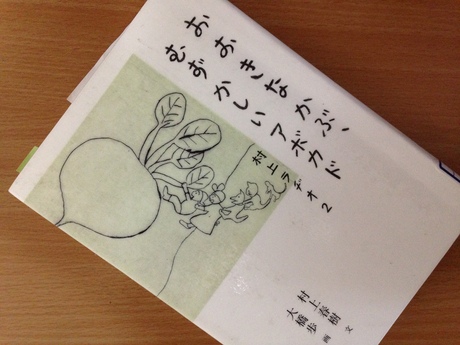 おおきなかぶ、
むずかしいアボカド
村上ラヂオ2
村上春樹 文
大橋歩 画